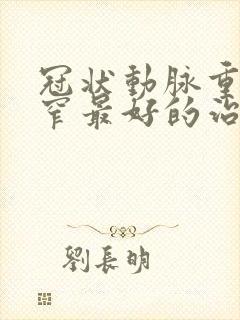 冠狀動脈重
窄最好的治
劉長明